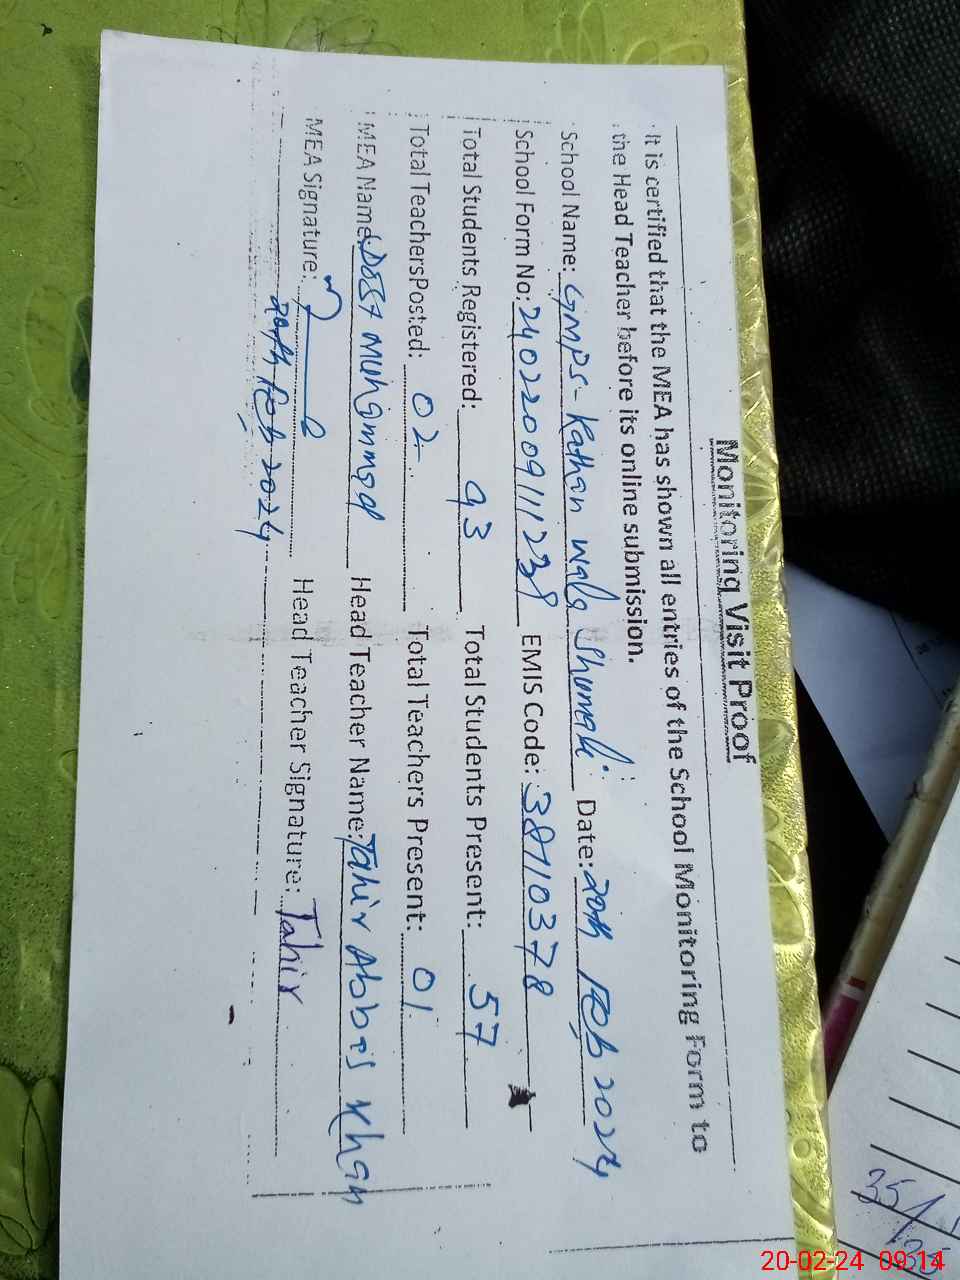 Monitoring Visit Proof
It is certified that the MEA has shown all entries of the School Monitoring Form to
the Head Teacher before its online submission.
School Name: GMPS-Kathan wala Shumali Date: 20th Feb 2024
School Form No: 24022009111238 EMIS Code: 38710378
Total Students Registered: 93 Total Students Present: 57
Total TeachersPosted: 02 Total Teachers Present: 01
MEA Name: Dost Muhammad Head Teacher Name: Tahir Abbas Khan
MEA Signature: Head Teacher Signature: Tahir
20th Feb 2024
35/
35
20-02-24 09:14